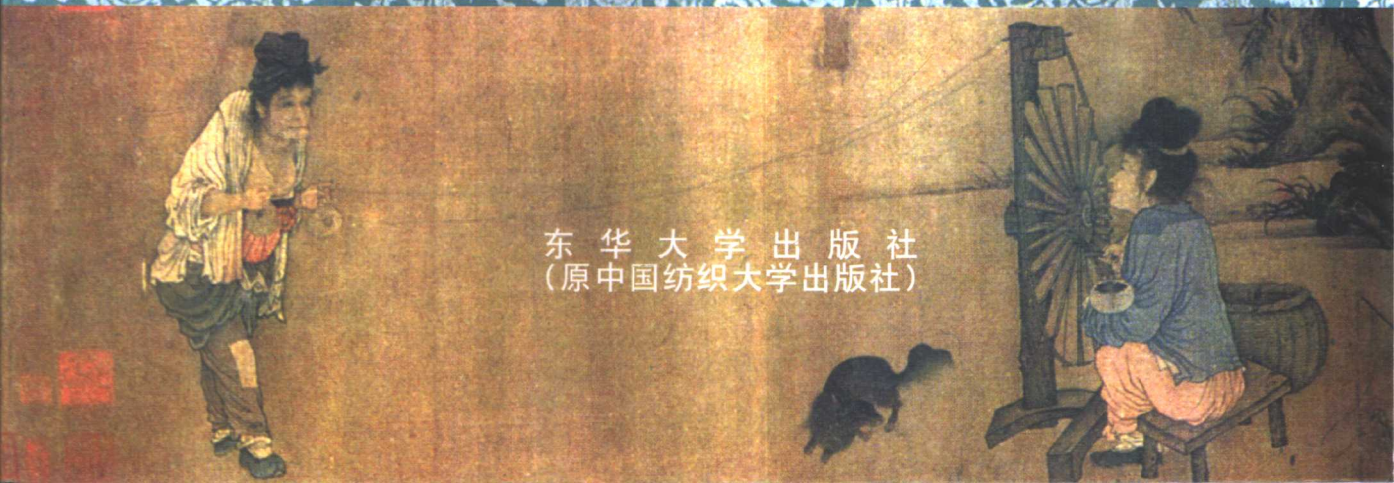 东华大学出版社
(原中国纺织大学出版社)